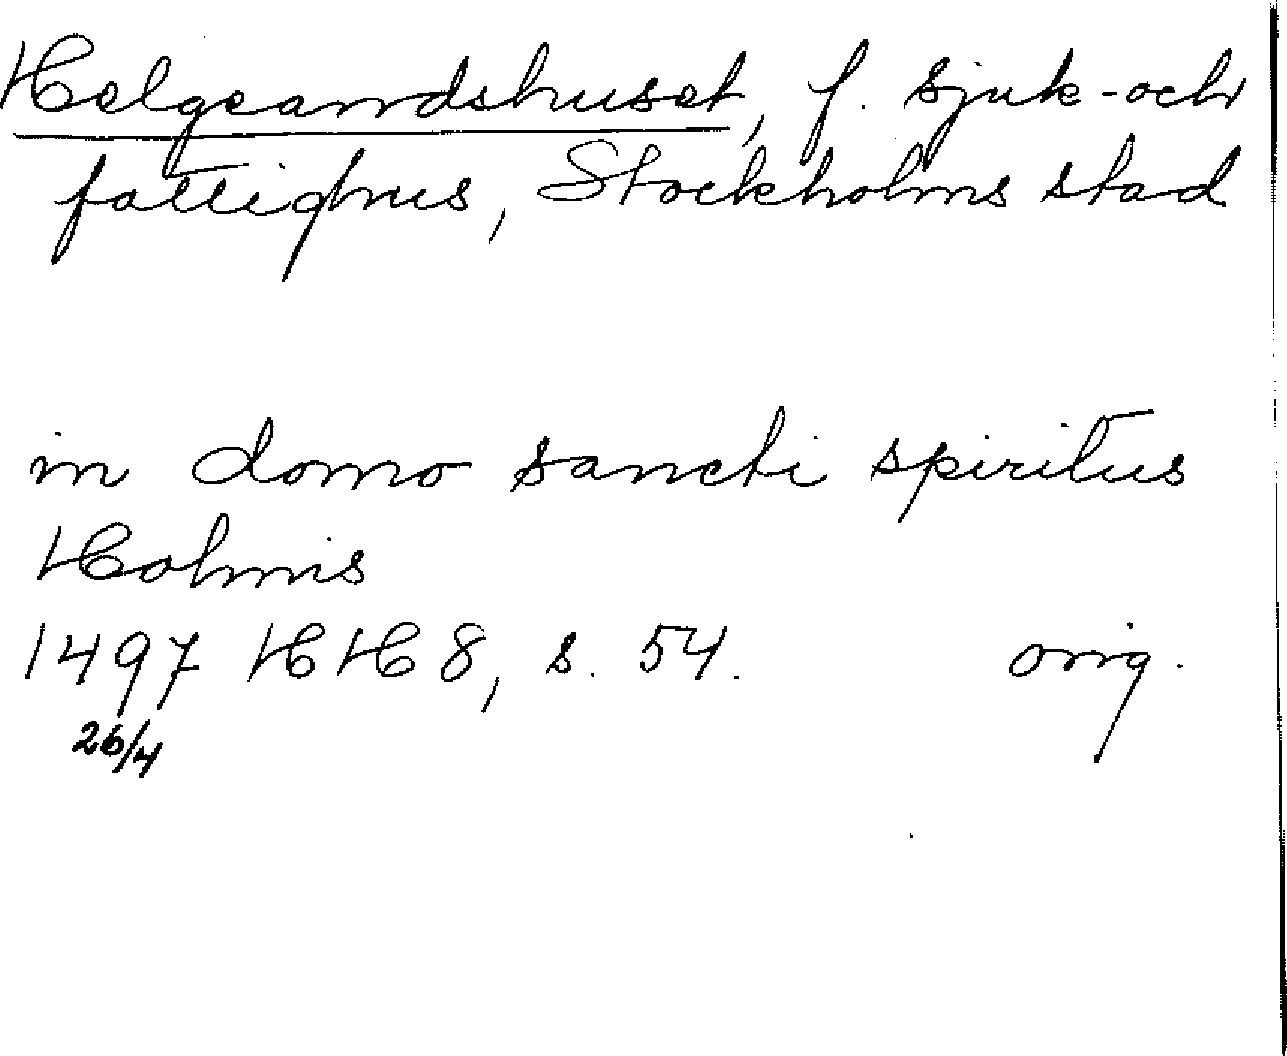 Helgeandshuset, f. sjuk- och
fattighus, Stockholms stad
in domo sancti spiritus
Holmis
1497 HH 8, s. 54. orig.
26/4